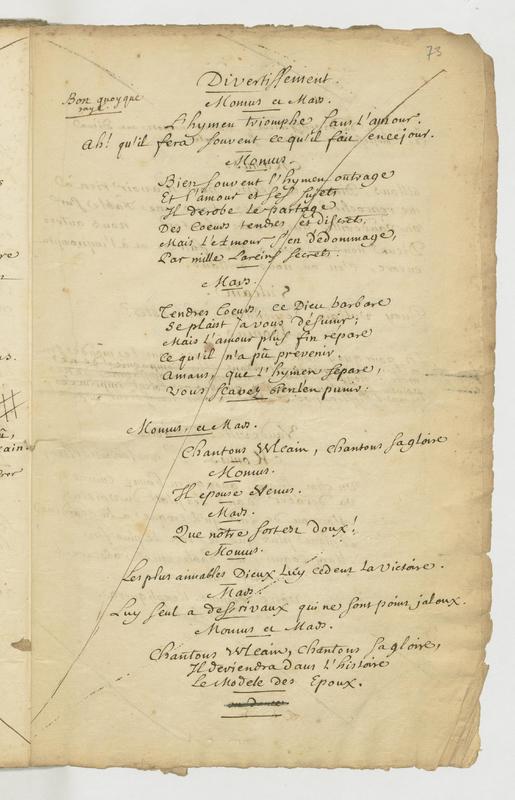 73
Divertissement.
Bon quoyque
rayé.
Momus et Mars.
L'hymen triomphe sans l'amour.
Ah! qu'il fera souvent ce qu'il fait en ce jour.
Momus.
Bien souvent l'hymen outrage
Et l'amour et ses sujets
Il derobe le partage
Des Coeurs tendres et discrets,
Mais l'Amour s'en dédommage,
Par mille Larcins secrets.
Mars.
Tendres Coeurs, ce Dieu barbare
Se plaist a vous désunir;
Mais l'amour plus fin repare
Ce qu'il n'a pû prevenir.
Amans, que l'hymen separe,
Vous sçavez bien l'en punir.
Momus, et Mars.
Chantons Vulcain, chantons sa gloire
Momus.
Il épouse Venus.
Mars.
Que notre sort est doux!
Momus.
Les plus aimables Dieux Luy cedent la victoire.
Mars.
Luy seul a des rivaux qui ne sont point jaloux.
Momus et Mars.
Chantons Vulcain, Chantons sa gloire,
Il deviendra dans l'histoire
Le Modele des Epoux.
on dance